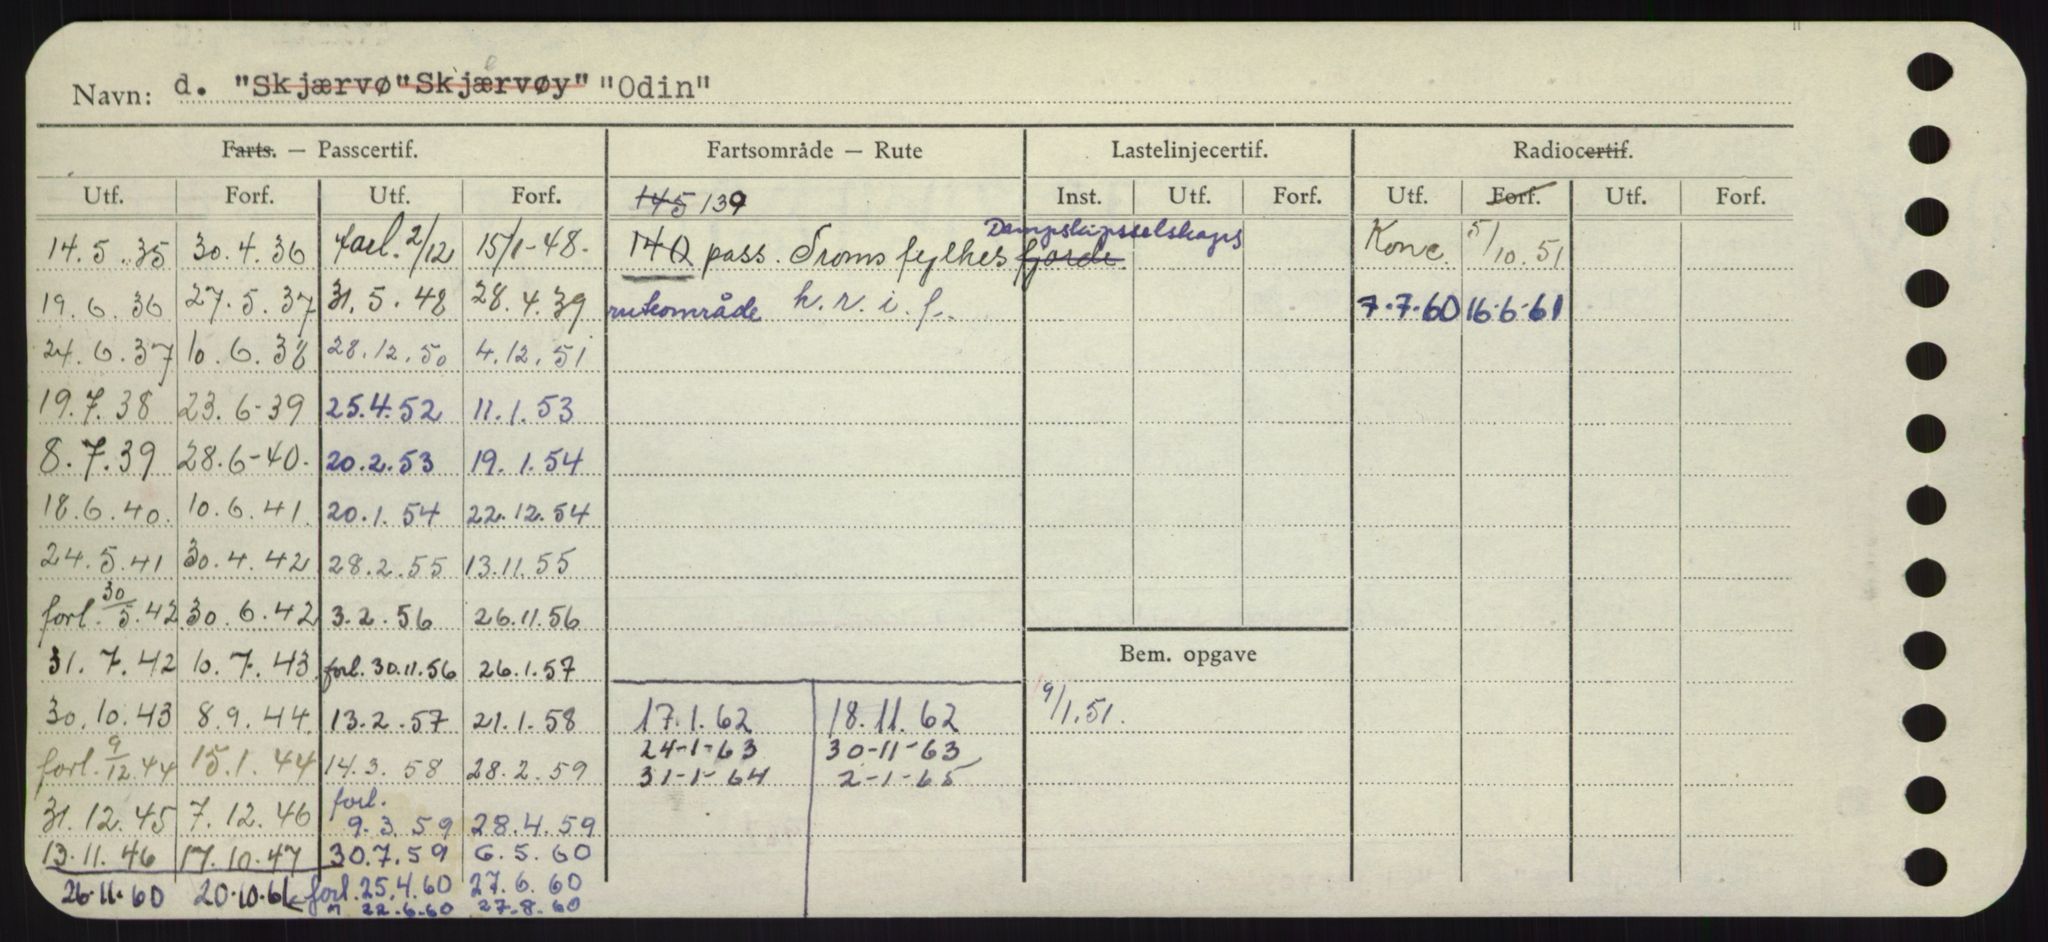 Navn: d. "Skjærvø" "Skjærvøy" "Odin"
Farts. — Passcertif. Fartsområde — Rute Lastelinjecertif. Radiocertif.
Utf. Forf. Utf. Forf. 145 139 Inst. Utf. Forf. Utf. Forf. Utf. Forf.
Dampskipsselskaps
14.5.35 30.4.36 forl. 2/12 15/1-48. 140 pass. Troms fylkes fjorde Konc. 5/10.51
19.6.36 27.5.37 31.5.48 28.4.39 ruteområde h.r.i.f. 7.7.60 16.6.61
24.6.37 10.6.38 28.12.50 4.12.51
19.7.38 23.6-39 25.4.52 11.1.53
8.7.39 28.6-40. 20.2.53 19.1.54
18.6.40. 10.6.41. 20.1.54 22.12.54
24.5.41 30.4.42 28.2.55 13.11.55
forl. 30/5.42 30.6.42 3.2.56 26.11.56
31.7.42 10.7.43 forl. 30.11.56 26.1.57 Bem. opgave
30.10.43 8.9.44 13.2.57 21.1.58 17.1.62 18.11.62 9/1.51.
24-1-63 30-11-63
forl. 9/12.44 15.1.44 14.3.58 28.2.59 31-1-64 2-1-65
31.12.45 7.12.46 forl. 9.3.59 28.4.59
13.11.46 17.10.47 30.7.59 6.5.60
26.11.60 20.10.61 forl. 25.4.60 27.6.60
" 22.6.60 27.8.60